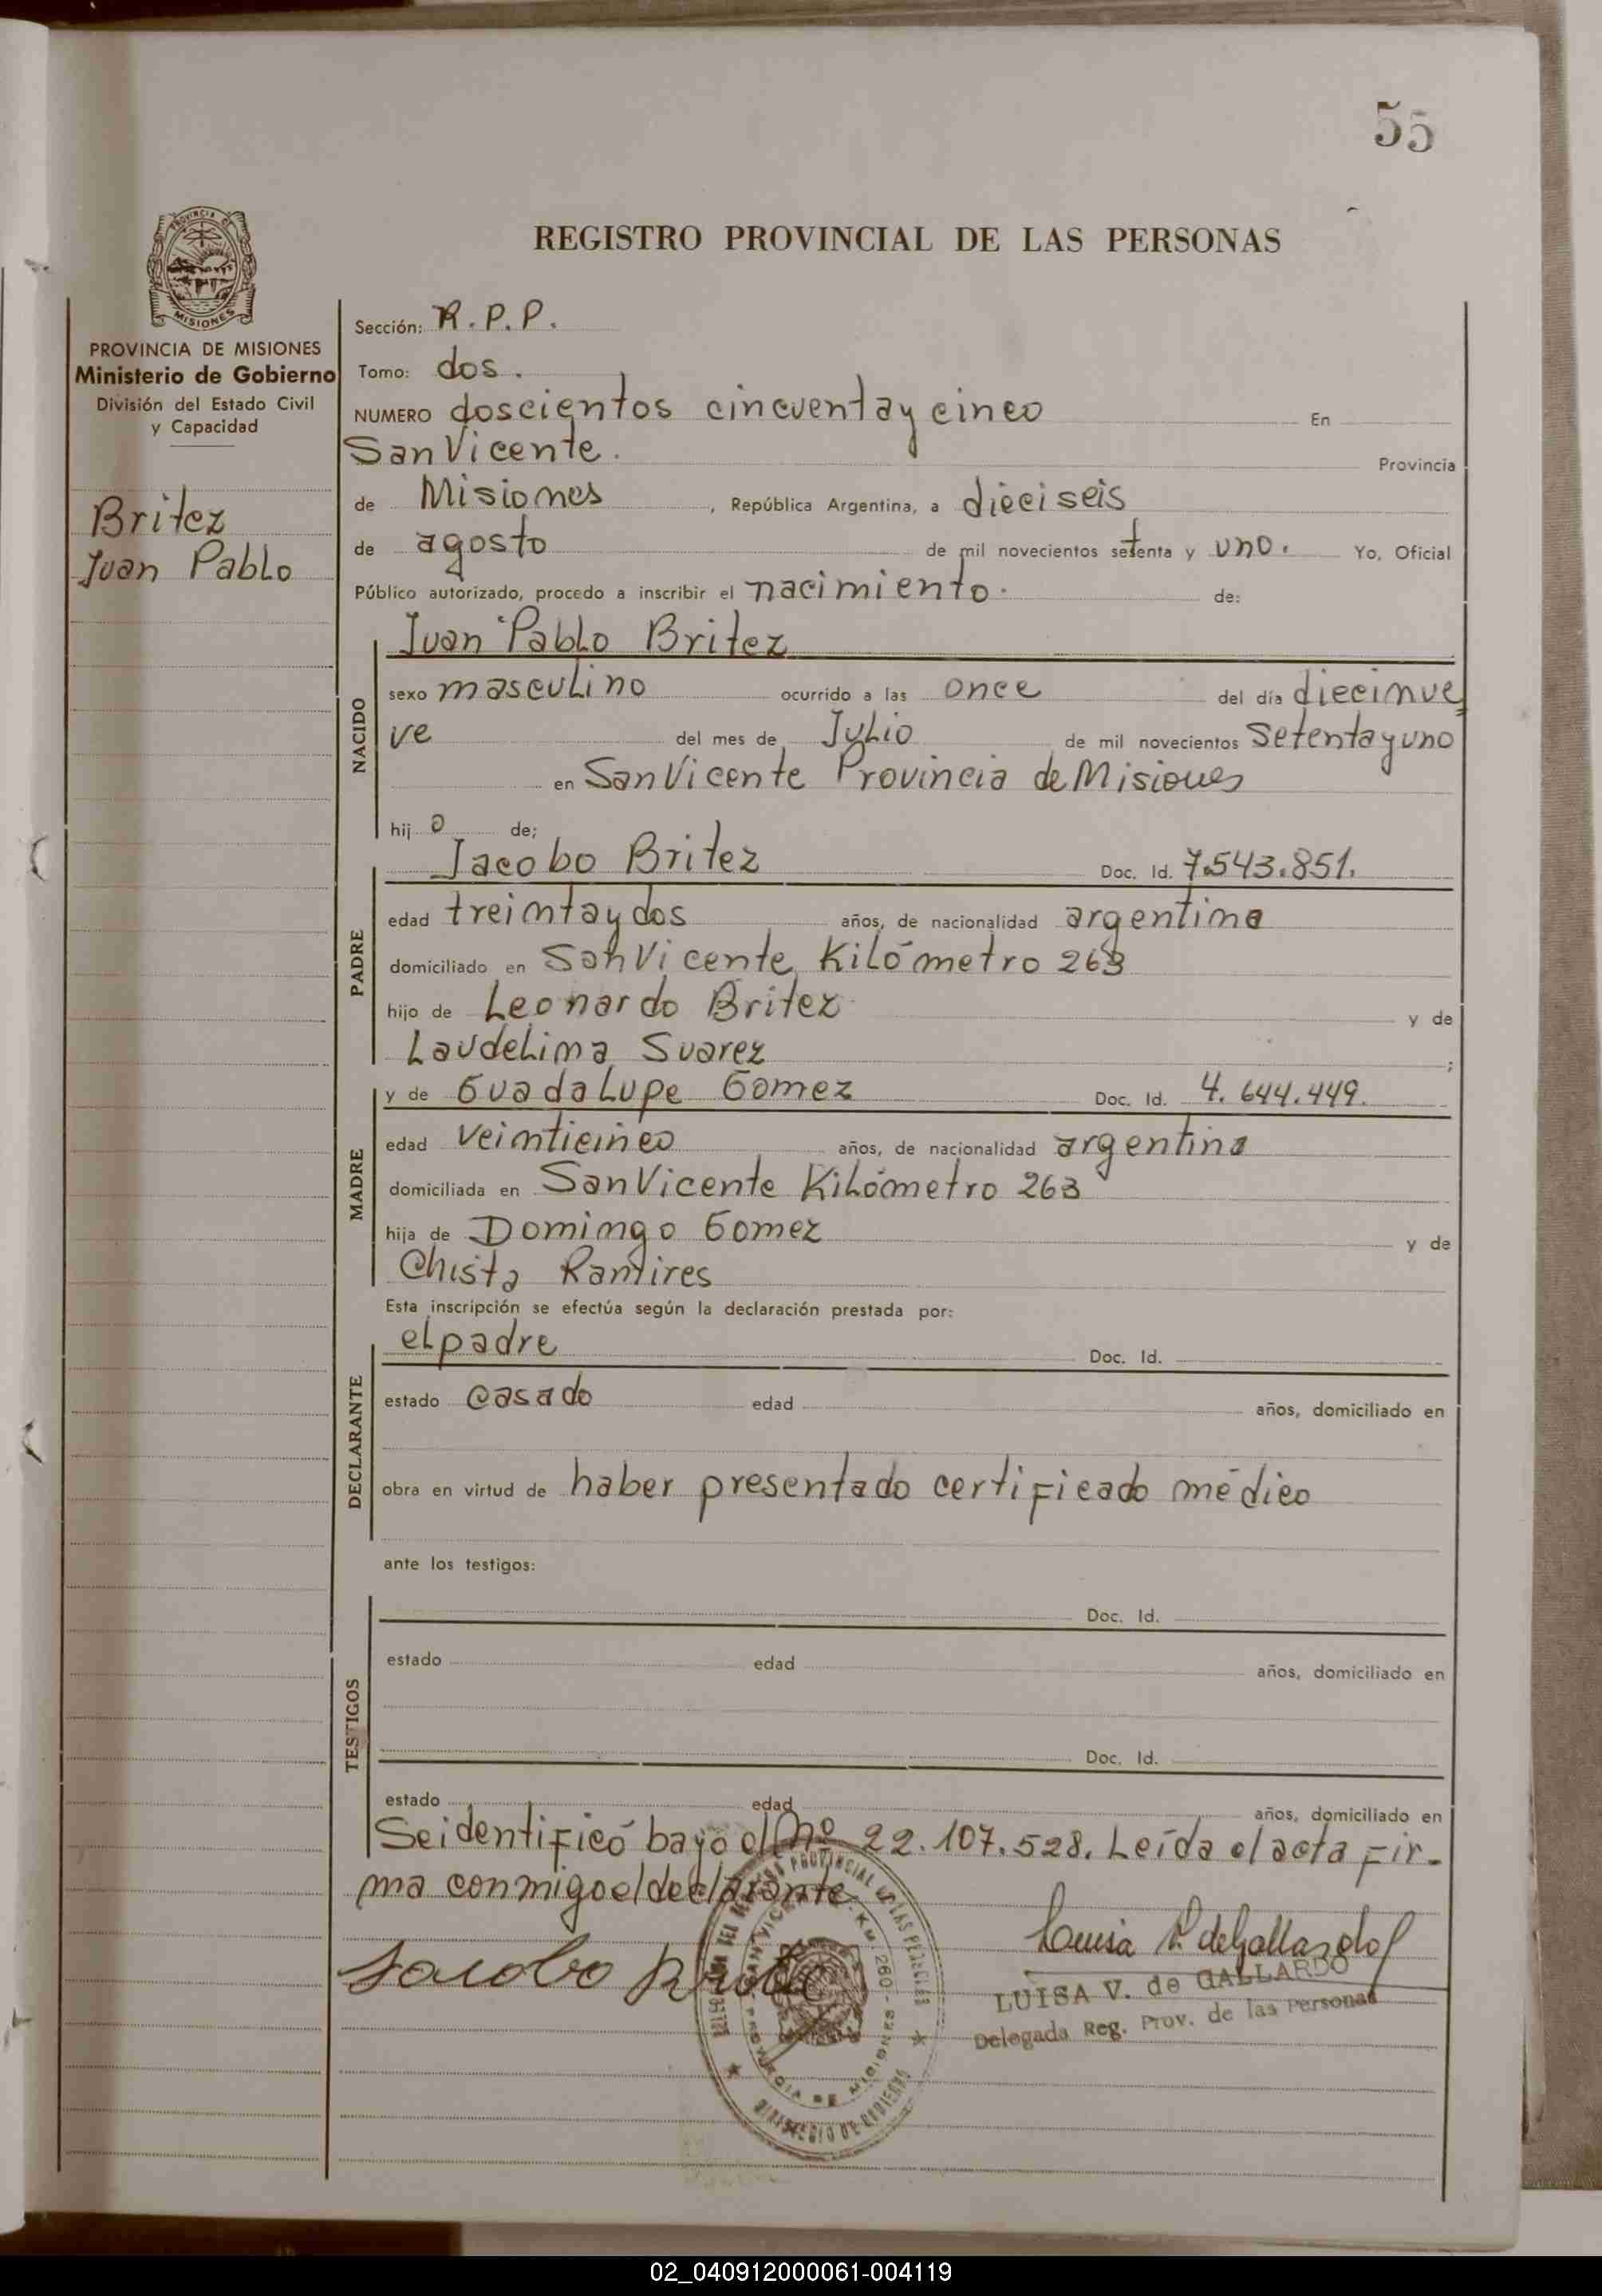 55
REGISTRO PROVINCIAL DE LAS PERSONAS
PROVINCIA DE MISIONES
PROVINCIA DE MISIONES
Ministerio de Gobierno
División del Estado Civil
y Capacidad
Britez
Juan Pablo
Sección: R.P.P.
Tomo: dos.
NUMERO doscientos cincuenta y cinco En
San Vicente. Provincia
de Misiones, República Argentina, a dieciseis
de agosto de mil novecientos setenta y uno. Yo, Oficial
Público autorizado, procedo a inscribir el nacimiento. de:
NACIDO
Juan Pablo Britez
sexo masculino ocurrido a las once del día diecinue
ve del mes de Julio de mil novecientos setenta y uno
en San Vicente Provincia de Misiones
hij o de;
PADRE
Jacobo Britez Doc. Id. 7.543.851.
edad treinta y dos años, de nacionalidad argentina
domiciliado en San Vicente Kilómetro 263
hijo de Leonardo Britez y de
Laudelina Suarez ;
MADRE
y de Guadalupe Gomez Doc. Id. 4.644.449.
edad veinticinco años, de nacionalidad argentina
domiciliada en San Vicente Kilómetro 263
hija de Domingo Gomez y de
Chista Ramires
Esta inscripción se efectúa según la declaración prestada por:
DECLARANTE
el padre Doc. Id.
estado casado edad años, domiciliado en
obra en virtud de haber presentado certificado médico
ante los testigos:
TESTIGOS
Doc. Id.
estado edad años, domiciliado en
Doc. Id.
estado edad años, domiciliado en
Se identificó bayo el Nº 22.107.528. Leída el acta fir-
ma conmigo el declarante
Jacobo Britez
Luisa V. de Gallardo
LUISA V. de GALLARDO
Delegada Reg. Prov. de las Personas
SAN VICENTE - KM. 260 - MISIONES
PROVINCIA DE MISIONES
MINISTERIO DE GOBIERNO
02_040912000061-004119